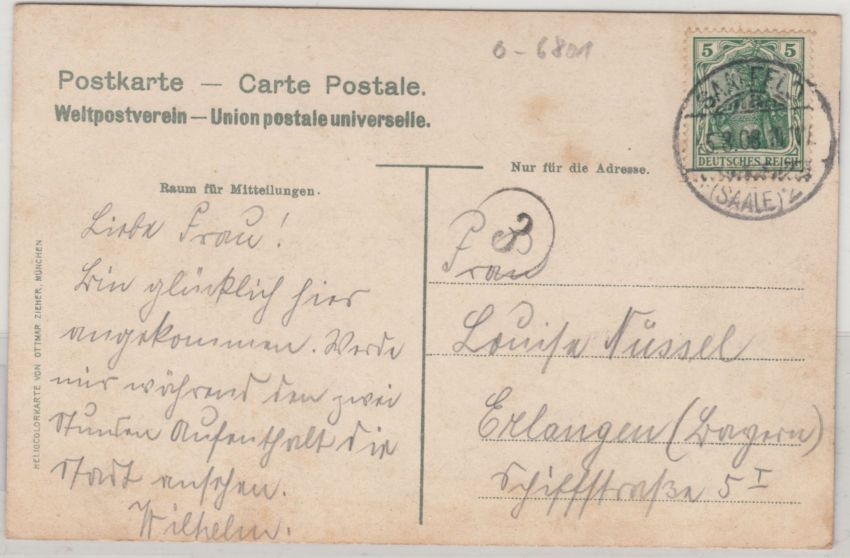 0-6801
Postkarte — Carte Postale.
Weltpostverein — Union postale universelle.
Raum für Mitteilungen.
Liebe Frau!
Bin glücklich hier
angekommen. Werde
mir während den zwei
Stunden Aufenthalt die
Stadt ansehen.
Wilhelm.
HELIOCOLORKARTE VON OTTMAR ZIEHER, MÜNCHEN
5 5
DEUTSCHES REICH
SAALFELD
(SAALE) 2
Nur für die Adresse.
Frau
Louise Nüssel
Erlangen (Bayern)
Schiffstraße 5 I